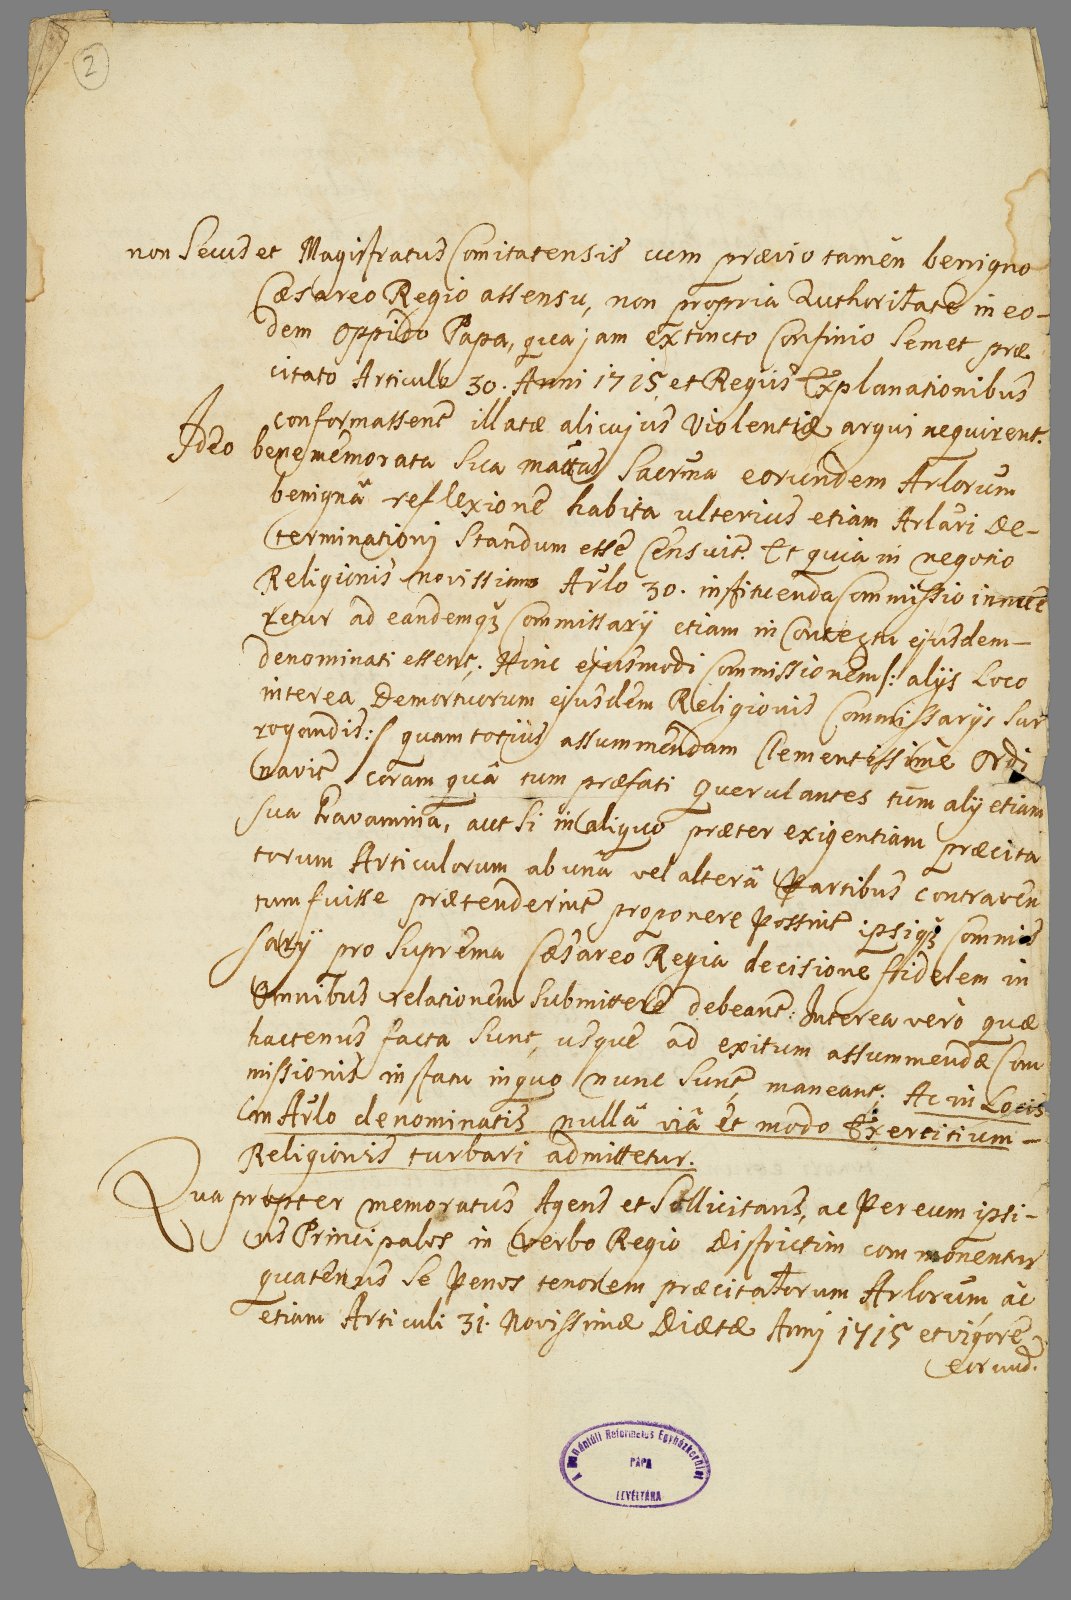 2
non Secus et Magistratus Comitatensis cum prævio tamen benigno
Cæsareo Regio assensu, non propria Authoritate in eo-
dem oppido Papa, qua jam extincto Confinio semet præ
citato Articulo 30. Anni 1715 et Regiis Explanationibus
conformassent illatæ alicujus Violentiæ argui nequirent.
Adeo benememorata Sua Mattas Sacrma eorundem Arlorum
benignâ reflexione habita ulterius etiam Arlari De-
terminationi Standum esse Censuit. Et quia in negotio
Religionis novissimo Arlo 30. instituenda Commissio innue
retur ad eandemqz Commissarij etiam in Contextu ejusdem-
denominati essent; Hinc ejusmodi Commissionem /: alijs Loco
interea Demortuorum ejusdem Religionis Commissarijs sur
rogandis :/ quam totius assummendam Clementissime Ordi
navit coram quâ tum præfati Querulantes tum alij etiam
sua Gravamina, aut si in aliquo præter exigentiam præcita
torum Articulorum ab unâ vel alterâ Partibus contraven
tum fuisse prætenderint proponere possint ipsiqz Commis
sarij pro Suprema Cæsareo Regia decisione fidelem in
Omnibus relationem Submittere debeant: Interea verò quæ
hactenus facta sunt, usque ad exitum assummendæ Com
missionis in statu in quo nunc sunt, maneant; Ac in Locis
in Arlo denominatis nullâ viâ et modo Exercitium-
Religionis turbari admittetur.
Quapropter memoratus Agens et Sollicitans, ac Per eum ipsi-
us Principales in Verbo Regio Districtim commonentur
quatenus se penes tenorem præcitatorum Arlorum ac
etiam Articuli 31. Novissimæ Diætæ Anni 1715 et vigore
eorund.
A Dunántúli Református Egyházkerület
PÁPA
LEVÉLTÁRA